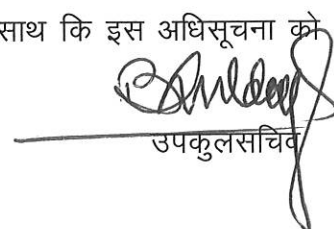 साथ कि इस अधिसूचना को
उपकुलसचिव